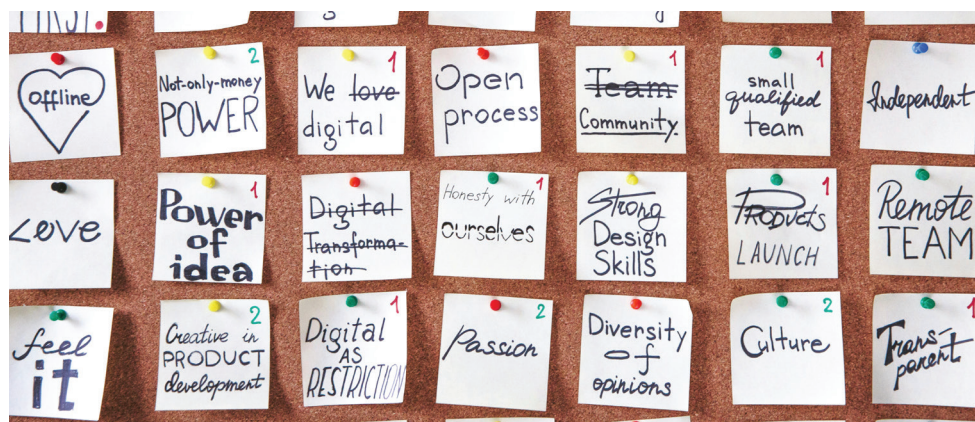 FIRST.
offline
Not-only-money
POWER
2
We love
digital
1
Open
process
Team
Community.
1
small
qualified
team
1
Independent
Love
Power
of
idea
1
Digital
Transforma-
tion
Honesty with
ourselves
1
Strong
Design
Skills
Products
LAUNCH
1
Remote
TEAM
feel
it
Creative in
PRODUCT
development
2
Digital
AS
RESTRICTION
1
Passion
2
Diversity
of
opinions
Culture
2
Trans-
parent
1